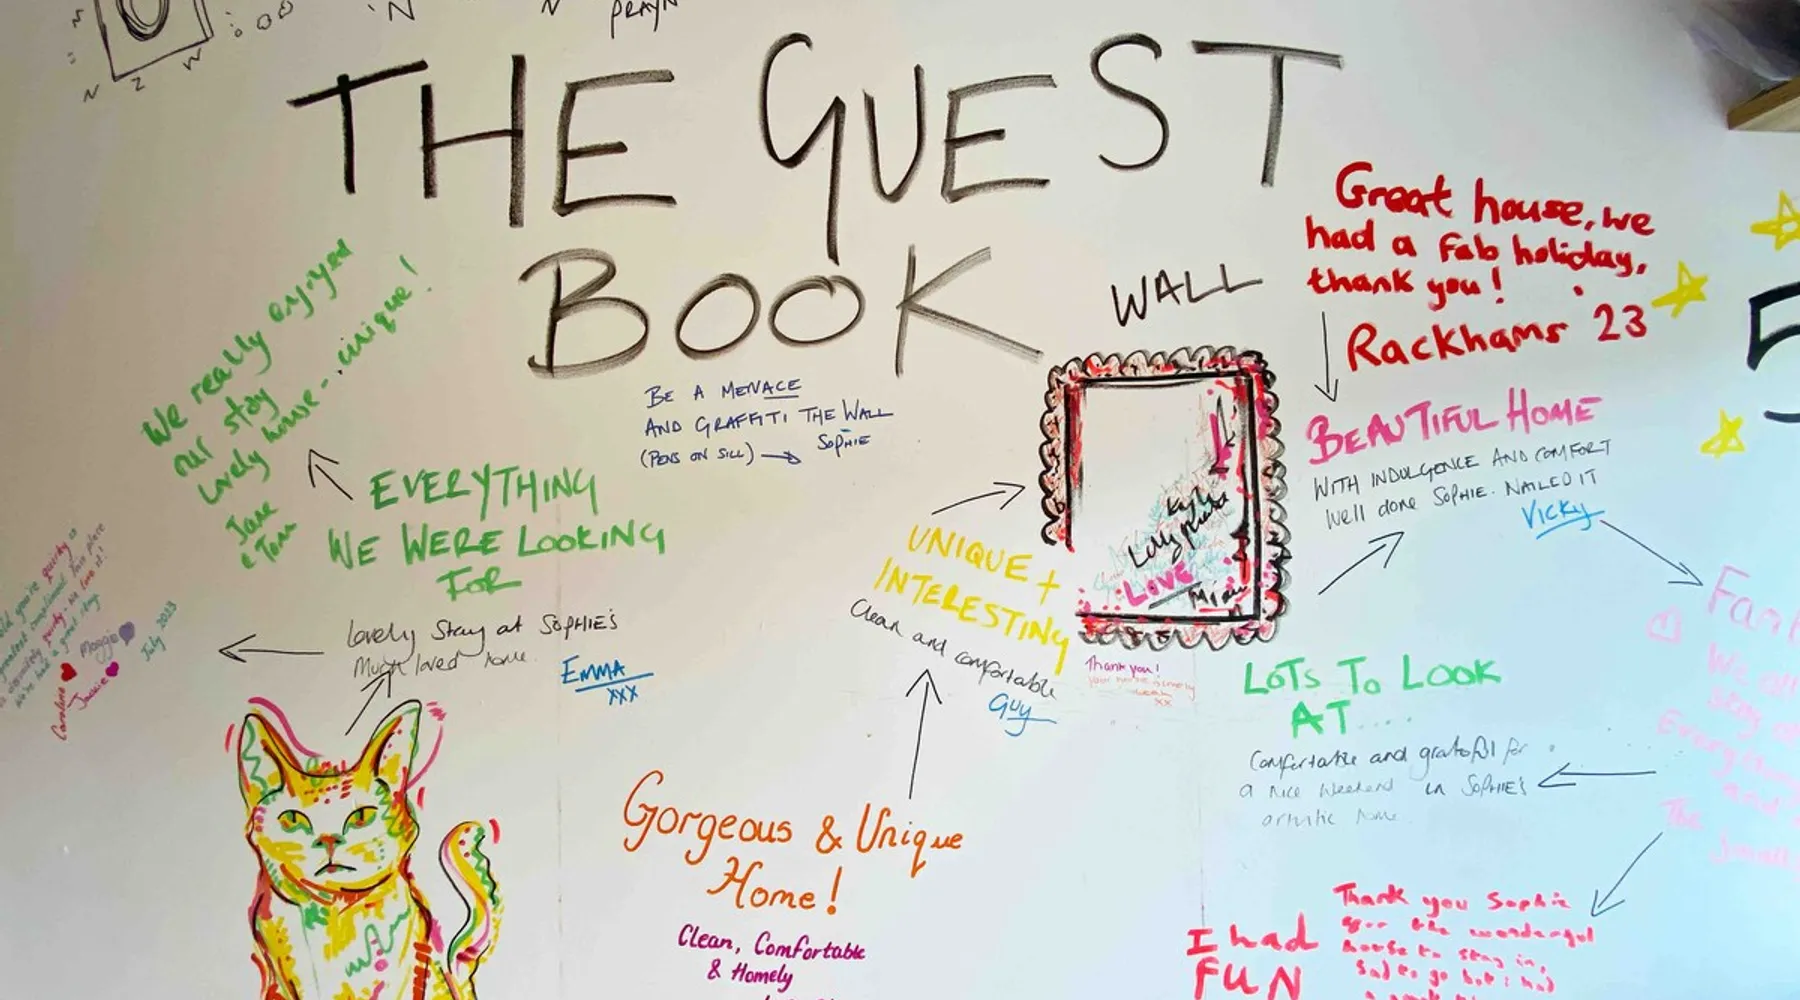 PRAYN
THE GUEST
BOOK
WALL
BE A MENACE
AND GRAFFITI THE WALL
(PENS ON SILL) → SOPHIE
We really enjoyed
our stay
lovely house - unique!
Jane
& Tom
EVERYTHING
WE WERE LOOKING
FOR
Lovely stay at SOPHIE'S
Much loved home.
EMMA
xxx
quirky
Maggie
Caroline
Jackie
July 2023
UNIQUE +
INTERESTING
Clean and comfortable
Guy
Lily
LOVE
Thank you!
xx
Great house, we
had a fab holiday,
thank you!
Rackhams 23
BEAUTIFUL HOME
WITH INDULGENCE AND COMFORT
Well done SOPHIE. NAILED IT
Vicky
5
LOTS TO LOOK
AT....
Comfortable and grateful for
a nice weekend in SOPHIE'S
artistic home.
We all
stay
Everything
and
The
Small
Gorgeous & Unique
Home!
Clean, Comfortable
& Homely
I had
FUN
Thank you Sophie
for the wonderful
house to stay in,
Sad to go but i had